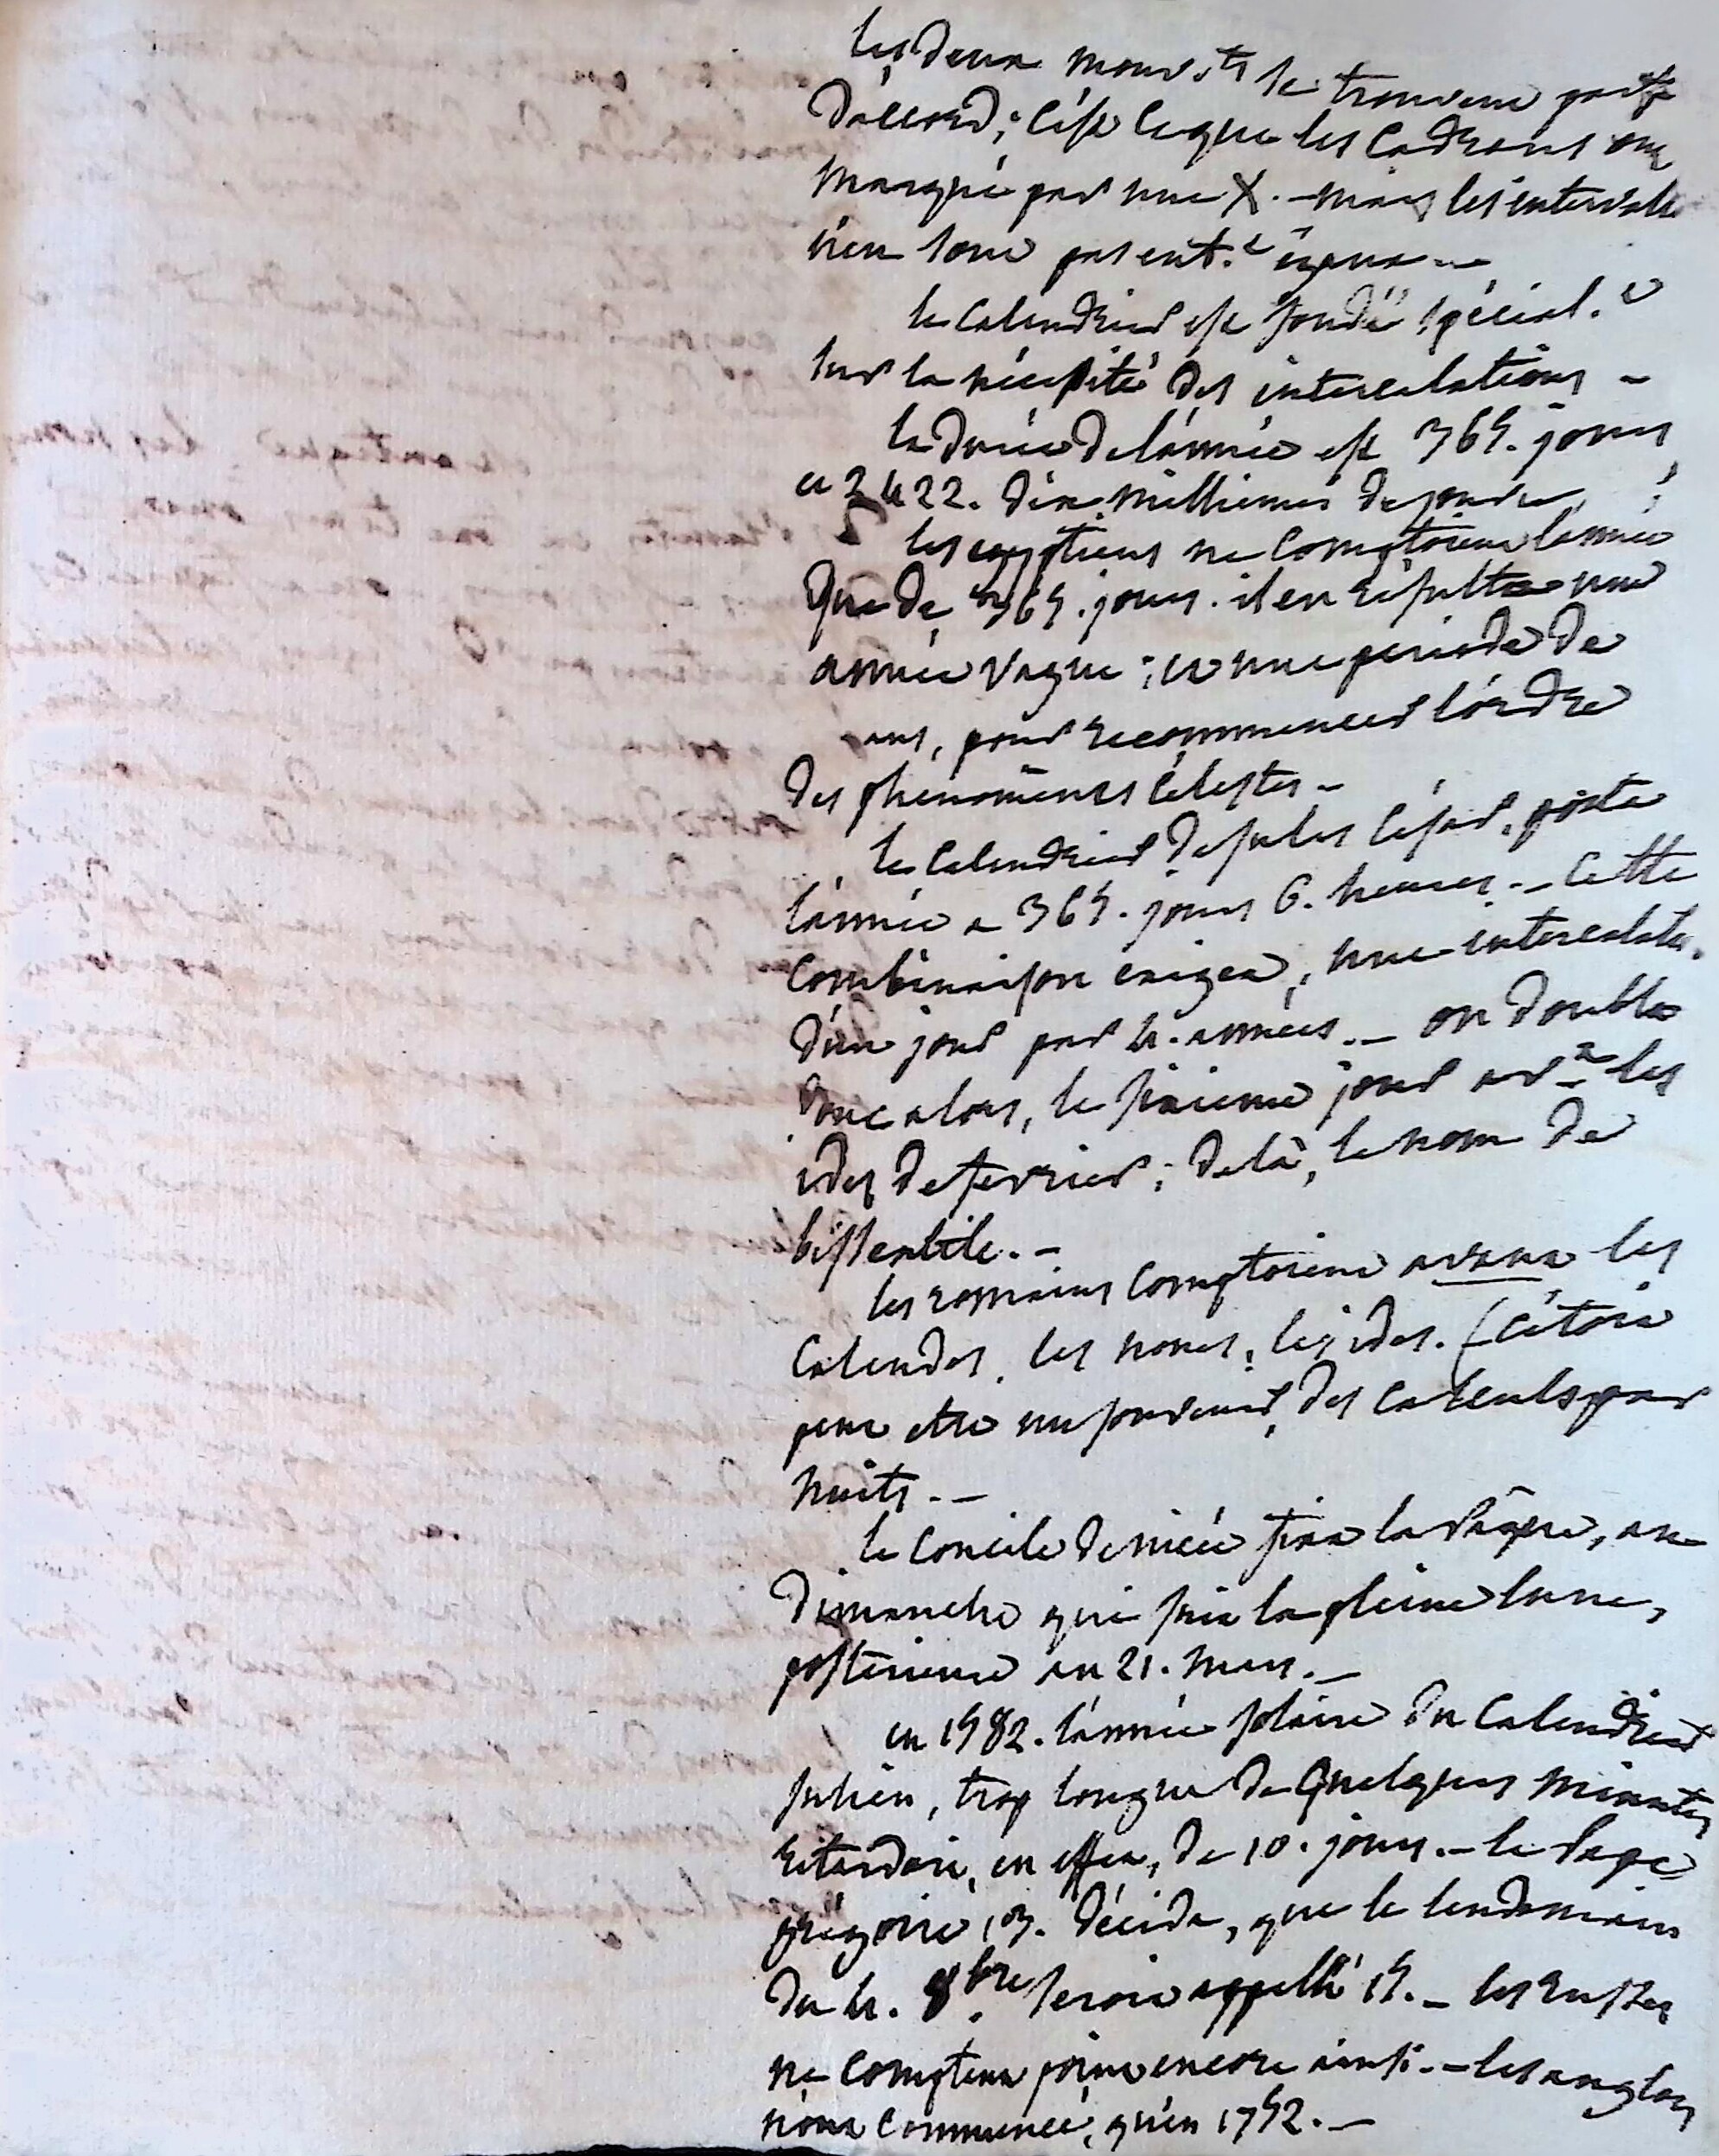 les deux mouv.ts se trouvent parf.
d'accord; c'est ce que les cadrans ont
marqué par une X. - mais les intervalles
n'en sont pas ent.t égaux -
le calendrier est fondé spécial.t
sur la nécessité des intercalations -
la durée de l'année est 365. jours
et 2422. dix millièmes de jour
les egyptiens ne comptoient l'année
que de 365. jours. il en résulta une
année vague; et une periode de
ans, pour recommencer l'ordre
des phenomènes célestes -
le calendrier de jules césar, porta
l'année a 365. jours 6. heures. - cette
combinaison exigea, une intercalat.
d'un jour par 4. années. - on doubla
donc alors, le sixieme jour av.t les
ides de fevrier; delà, le nom de
bissextile. -
les romains comptoient avant les
calendes, les nones, les ides. (c'étoit
peut etre un souvenir, des calculs par
nuits. -
le concile de nicée fixa la Pâque, au
dimanche qui suit la pleine lune,
postérieure au 21. mars. -
en 1582. l'année solaire du calendrier
julien, trop longue de quelques minutes
retardoit, en effet, de 10. jours. - le Pape
gregoire 13. décida, que le lendemain
du 4. 8bre. seroit appellé 15. - les russes
ne comptent point encore ainsi. - les anglois
n'ont commencé, qu'en 1752. -